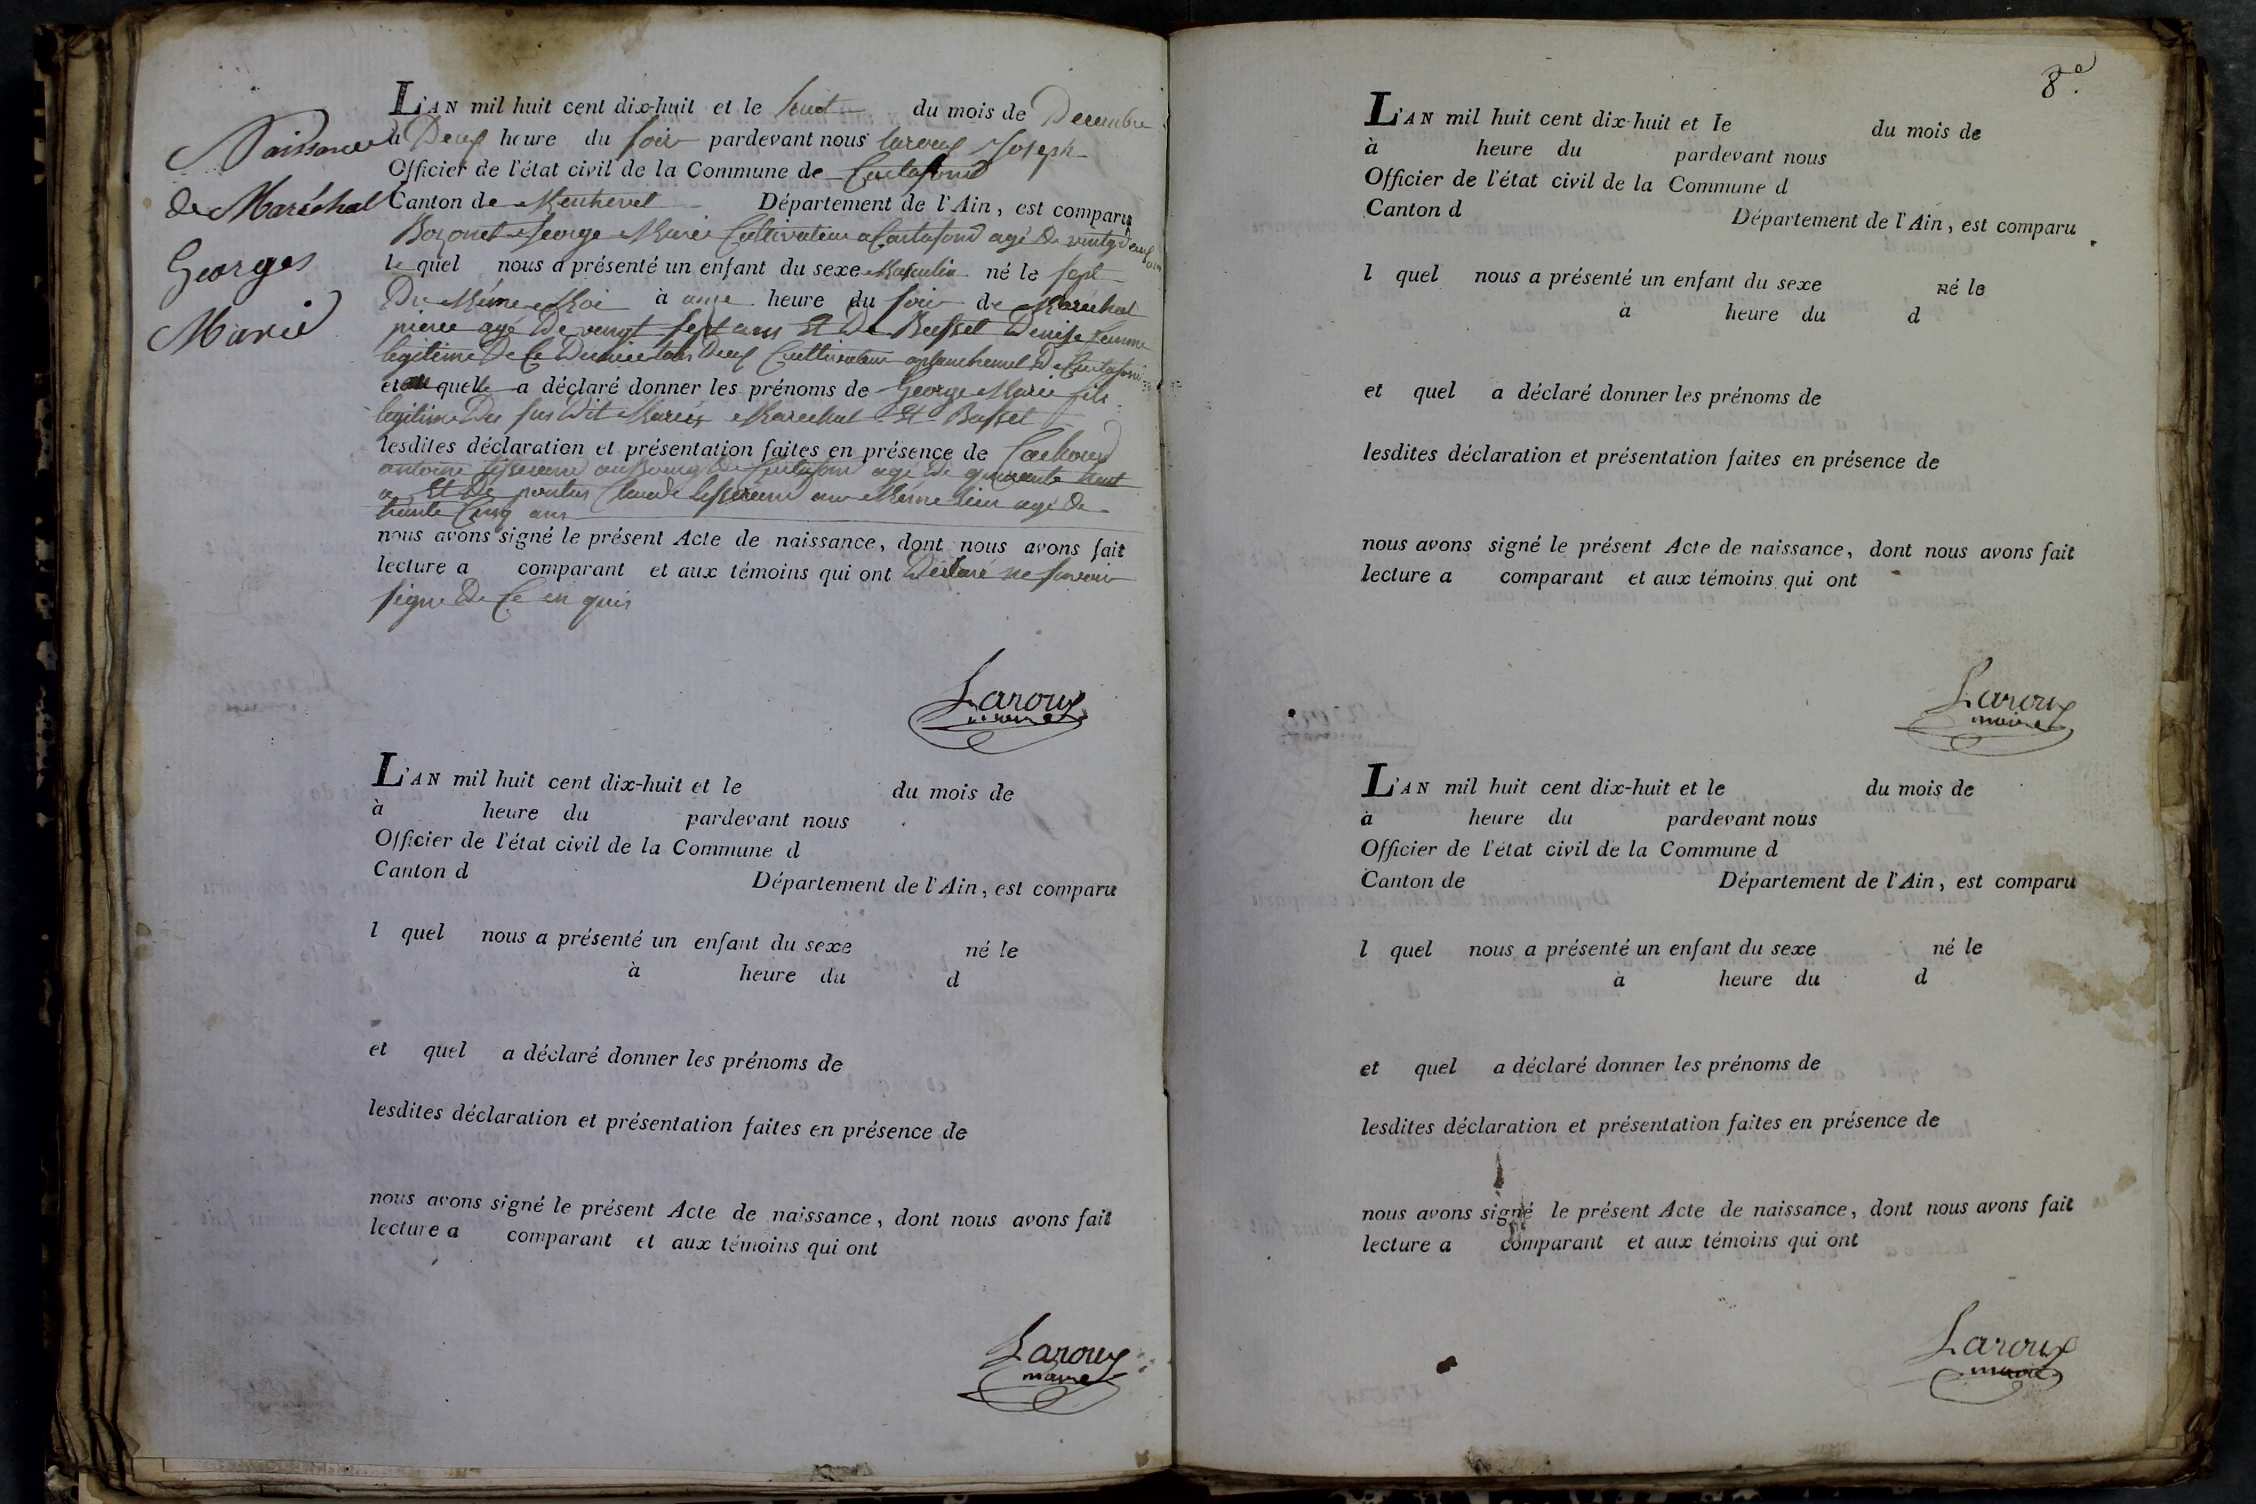 Naissance
de Maréchal
Georges
Marie
L'AN mil huit cent dix-huit et le huit du mois de Decembre
à Deux heure du soir pardevant nous Laroux Joseph
Officier de l'état civil de la Commune de Curtafond
Canton de Département de l'Ain, est comparu
Bozonet George Marie Cultivateur a Curtafond agé de vingt deux ans
le quel nous a présenté un enfant du sexe Masculin né le sept
Du Même Moi à onze heure du soir de Marechal
pierre agé De vingt sept ans Et De Buffet Denise femme
legitime De Ce Dernier tous Deux Cultivateur De Curtafond
et quelle a déclaré donner les prénoms de George Marie fils
legitime Des sus Dit Mariés Marechal Et Buffet
lesdites déclaration et présentation faites en présence de
antoine tisserand au Bourg De Curtafond agé De quarante huit
Et De Claude tisserand au Même lieu agé De
trente Cinq ans
nous avons signé le présent Acte de naissance, dont nous avons fait
lecture a comparant et aux témoins qui ont Déclaré ne savoir
signe De Ce en quis
Laroux
maire
L'AN mil huit cent dix-huit et le du mois de
à heure du pardevant nous
Officier de l'état civil de la Commune d
Canton d Département de l'Ain, est comparu
l quel nous a présenté un enfant du sexe né le
à heure du d
et quel a déclaré donner les prénoms de
lesdites déclaration et présentation faites en présence de
nous avons signé le présent Acte de naissance, dont nous avons fait
lecture a comparant et aux témoins qui ont
Laroux
maire
8e.
L'AN mil huit cent dix-huit et le du mois de
à heure du pardevant nous
Officier de l'état civil de la Commune d
Canton d Département de l'Ain, est comparu
l quel nous a présenté un enfant du sexe né le
à heure du d
et quel a déclaré donner les prénoms de
lesdites déclaration et présentation faites en présence de
nous avons signé le présent Acte de naissance, dont nous avons fait
lecture a comparant et aux témoins qui ont
Laroux
maire
L'AN mil huit cent dix-huit et le du mois de
à heure du pardevant nous
Officier de l'état civil de la Commune d
Canton de Département de l'Ain, est comparu
l quel nous a présenté un enfant du sexe né le
à heure du d
et quel a déclaré donner les prénoms de
lesdites déclaration et présentation faites en présence de
nous avons signé le présent Acte de naissance, dont nous avons fait
lecture a comparant et aux témoins qui ont
Laroux
maire